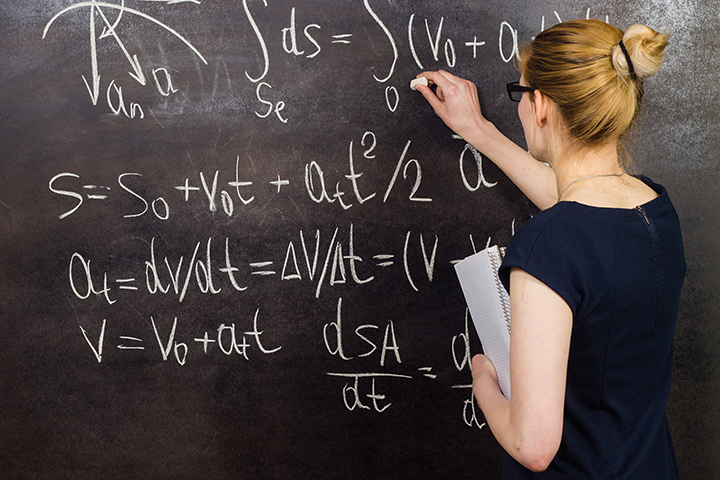 aₙ a ∫ ds = ∫ (v₀ + a
Se 0
s = s₀ + v₀t + aₜt²/2 a
aₜ = dv/dt = Δv/Δt = (v - v
v = v₀ + aₜt dsA/dt = d/d